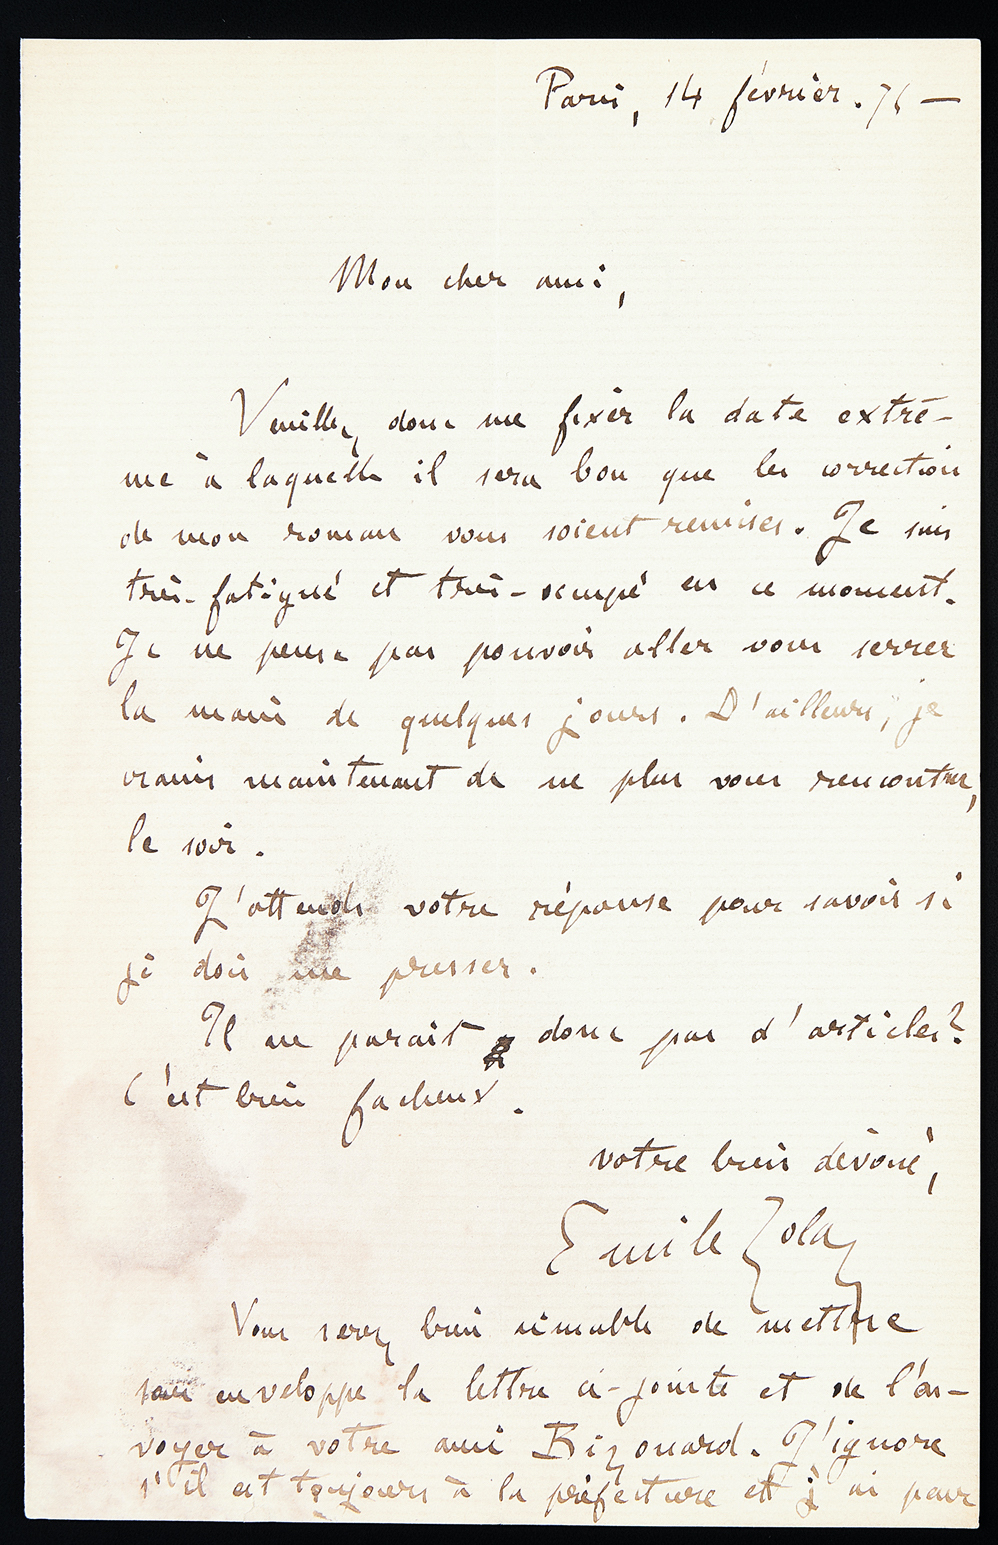 Paris, 14 février. 76 —
Mon cher ami,
Veuillez donc me fixer la date extrê-
me à laquelle il sera bon que les correction
de mon roman vous soient remises. Je suis
très-fatigué et très-occupé en ce moment.
Je ne pense pas pouvoir aller vous serrer
la main de quelques jours. D'ailleurs, je
crains maintenant de ne plus vous rencontrer,
le soir.
J'attends votre réponse pour savoir si
je dois me presser.
Il ne parait donc pas d'articles?
C'est bien facheux.
votre bien dévoué,
Emile Zola
Vous serez bien aimable de mettre
sous enveloppe la lettre ci-jointe et de l'en-
voyer à votre ami Bizouard. J'ignore
s'il est toujours à la préfecture et j'ai peur